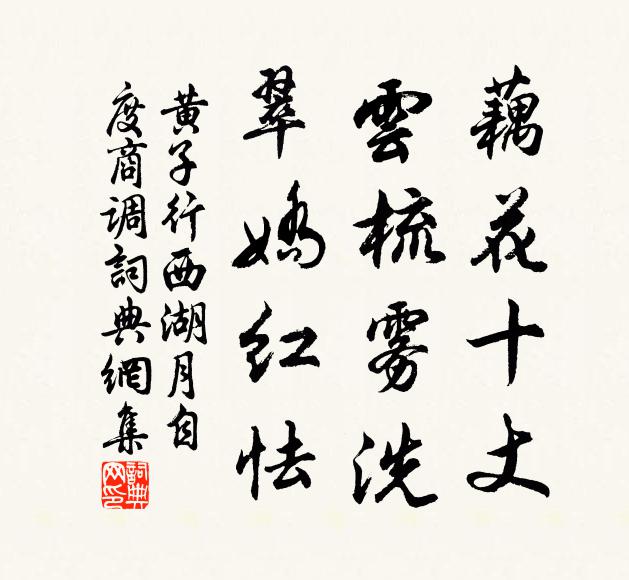 藕花十丈
雲梳雾洗
翠嬌红怯
黄子行西湖月自
度商调詞典網集
詞典网印